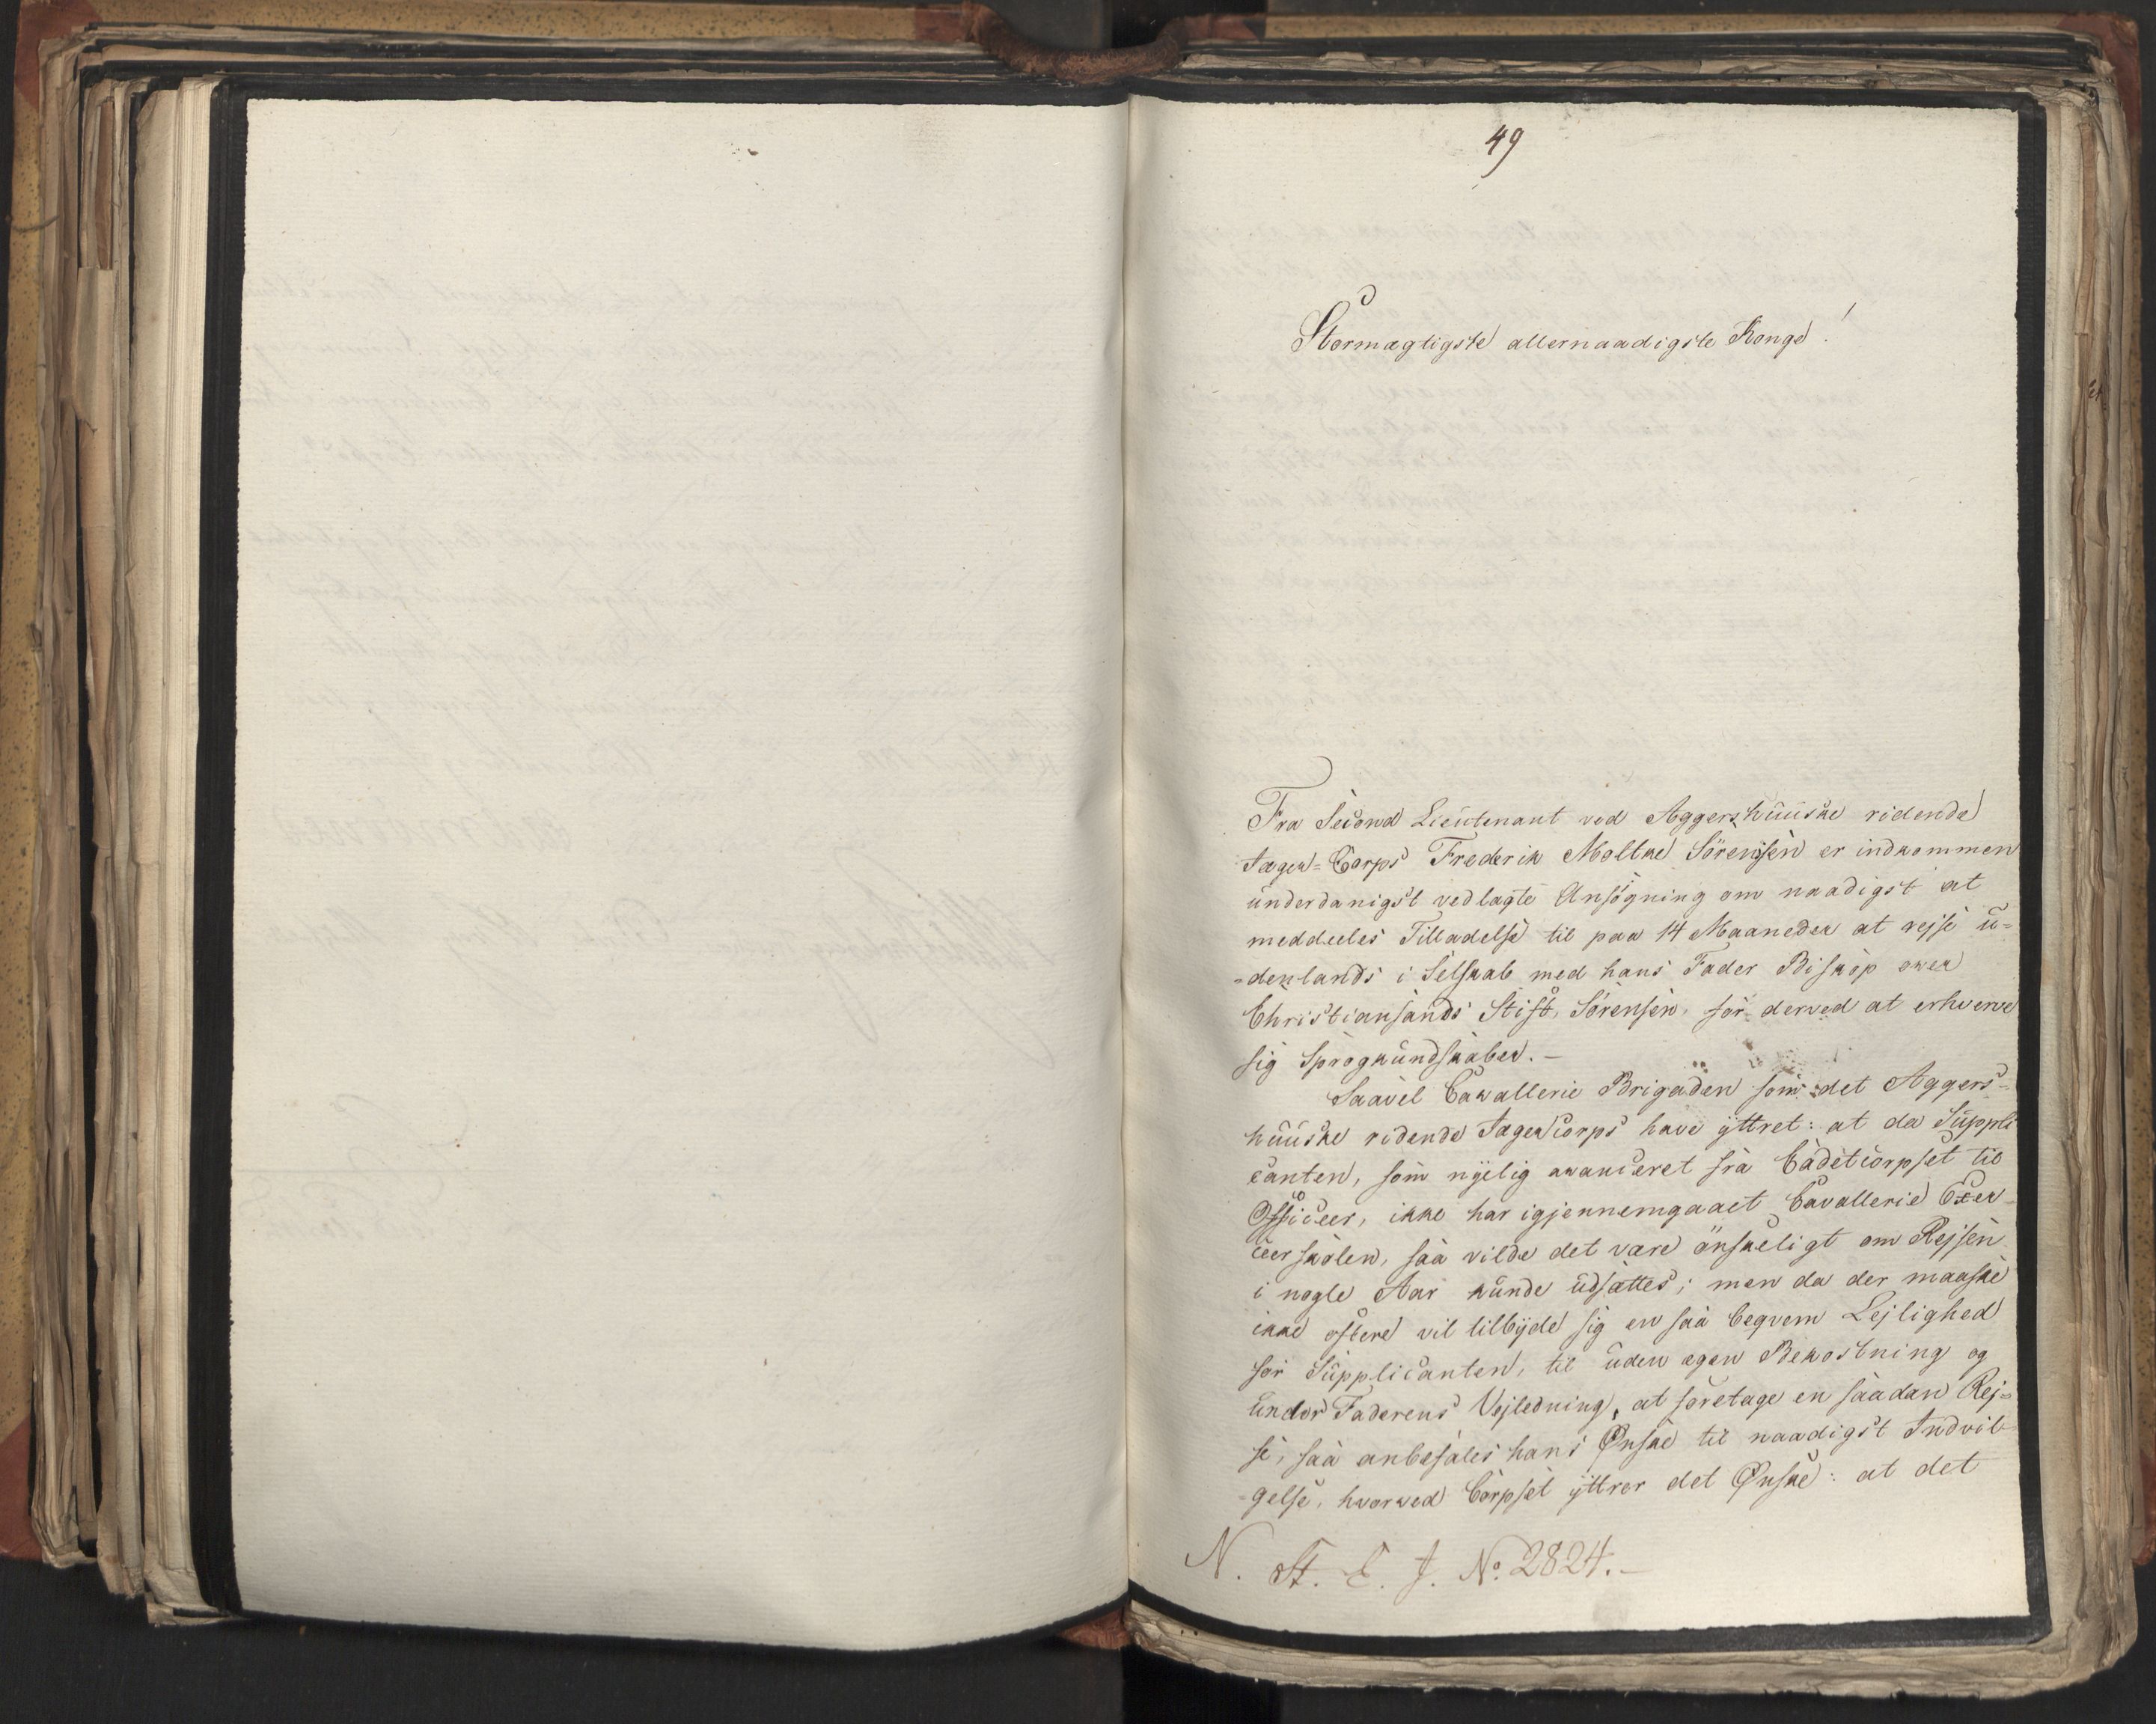 49
Stormægtigste allernaadigste Konge!
Fra Second Lieutenant ved Aggershuuske ridende
Jæger=Corps Frederik Moltke Sörensen er indkommen
underdanigst vedlagte Ansögning om naadigst at
meddeeles Tilladelse til paa 14 Maaneder at rejse u=
=denlands i Selskab med hans Fader Biskop over
Christiansands Stift, Sörensen, for derved at erhverve
sig Sprogkundskaber. -
Saavel Cavallerie Brigaden som det Aggers=
huuske ridende JægerCorps have yttret: at da Suppli
canten, som nyelig avanceret fra Cadetcorpset til
Officeer, ikke har igjennemgaaet Cavallerie Exer
ceerskolen, saa vilde det være önskeligt om Rejsen
i nogle Aar kunde udsættes; men da der maaske
ikke oftere vil tilbyde sig en saa beqvem Lejlighed
for Supplicanten, til uden egen Bekostning og
under Faderens Vejledning, at foretage en saadan Rej=
se, saa anbefales hans Ønske til naadigst Indvil
gelse, hvorved Corpset yttrer det Ønske: at det
N. St. E. J. No. 2824. -